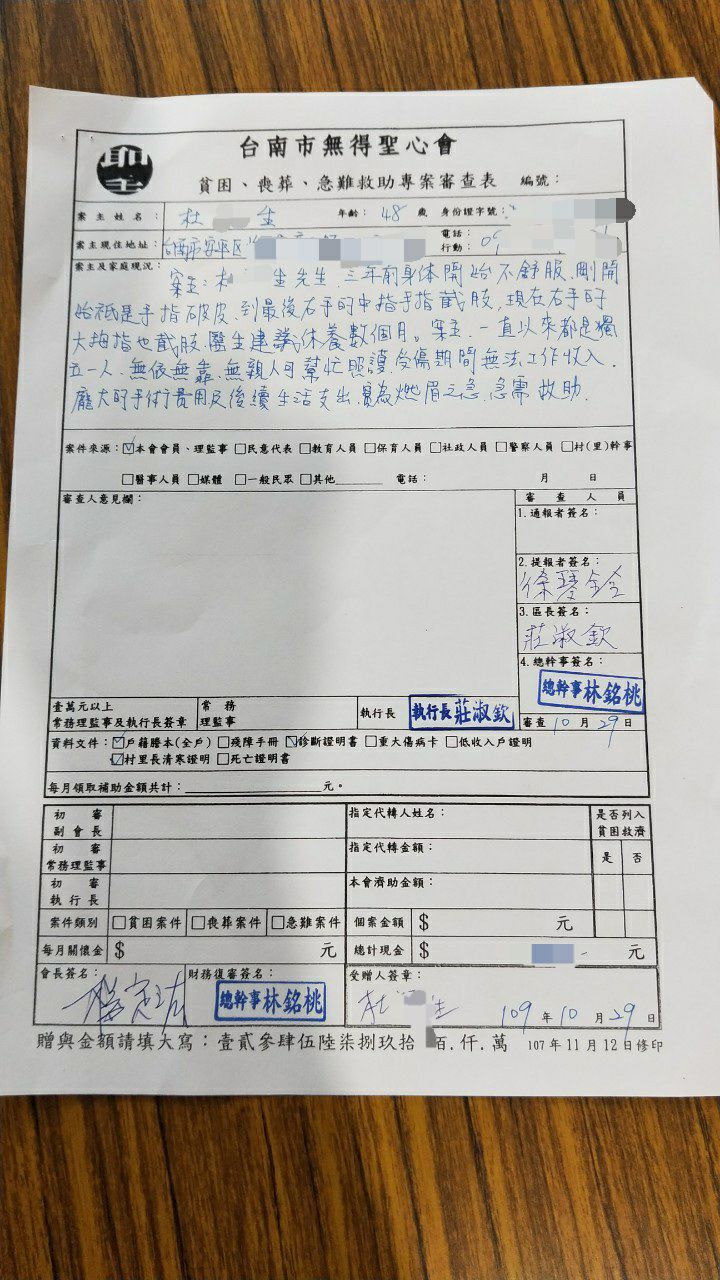 台南市無得聖心會
貧困、喪葬、急難救助專案審查表 編號：
案主姓名： 杜 生 年齡：48歲 身份證字號：
案主現住地址：台南市安平区 電話：
行動：
案主及家庭現況：
案主：杜 生先生、三年前身体開始不舒服、剛開
始祇是手指破皮、到最後右手的中指手指截肢、現在右手的
大拇指也截肢、醫生建議休養數個月。案主、一直以來都是獨
一人、無依無靠、無親人可幫忙照護受傷期間無法工作收入、
龐大的手術費用及後續生活支出、實為燃眉之急、急需救助、
案件來源：☑本會會員、理監事 □民意代表 □教育人員 □保育人員 □社政人員 □警察人員 □村(里)幹事
□醫事人員 □媒體 □一般民眾 □其他______ 電話： 月 日
審查人意見欄： 審查人員
1.通報者簽名：
2.提報者簽名：
3.區長簽名：
莊淑欽
4.總幹事簽名：
總幹事林銘桃
壹萬元以上
常務理監事及執行長簽章 常務理監事 執行長 執行長莊淑欽 審查10月29日
資料文件：☑戶籍謄本(全戶) □殘障手冊 ☑診斷證明書 □重大傷病卡 □低收入戶證明
☑村里長清寒證明 □死亡證明書
每月領取補助金額共計：____________元。
初審副會長 指定代轉人姓名： 是否列入貧困救濟
初審常務理監事 指定代轉金額： 是 否
初審執行長 本會濟助金額：
案件類別 □貧困案件 □喪葬案件 □急難案件 個案金額 $ 元
每月關懷金 $ 元 總計現金 $ - 元
會長簽名： 財務復審簽名： 受贈人簽章：
總幹事林銘桃 杜 生 109年10月29日
贈與金額請填大寫：壹貳參肆伍陸柒捌玖拾 百.仟.萬 107年11月12日修印